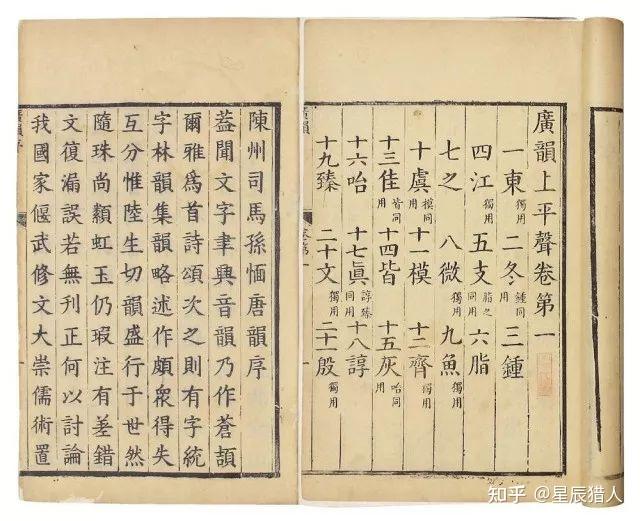 廣韻上平聲卷第一
一東獨用 二冬鍾同用 三鍾
四江獨用 五支脂之同用 六脂
七之 八微獨用 九魚獨用
十虞模同用 十一模 十二齊獨用
十三佳皆同用 十四皆 十五灰咍同用
十六咍 十七眞諄臻同用 十八諄
十九臻 二十文獨用 二十一殷獨用
廣韻
陳州司馬孫愐唐韻序
蓋聞文字聿興音韻乃作蒼頡
爾雅爲首詩頌次之則有字統
字林韻集韻略述作頗衆得失
互分惟陸生切韻盛行于世然
隨珠尚纇虹玉仍瑕注有差錯
文復漏誤若無刊正何以討論
我國家偃武修文大崇儒術置
廣韻序
知乎 @星辰猎人